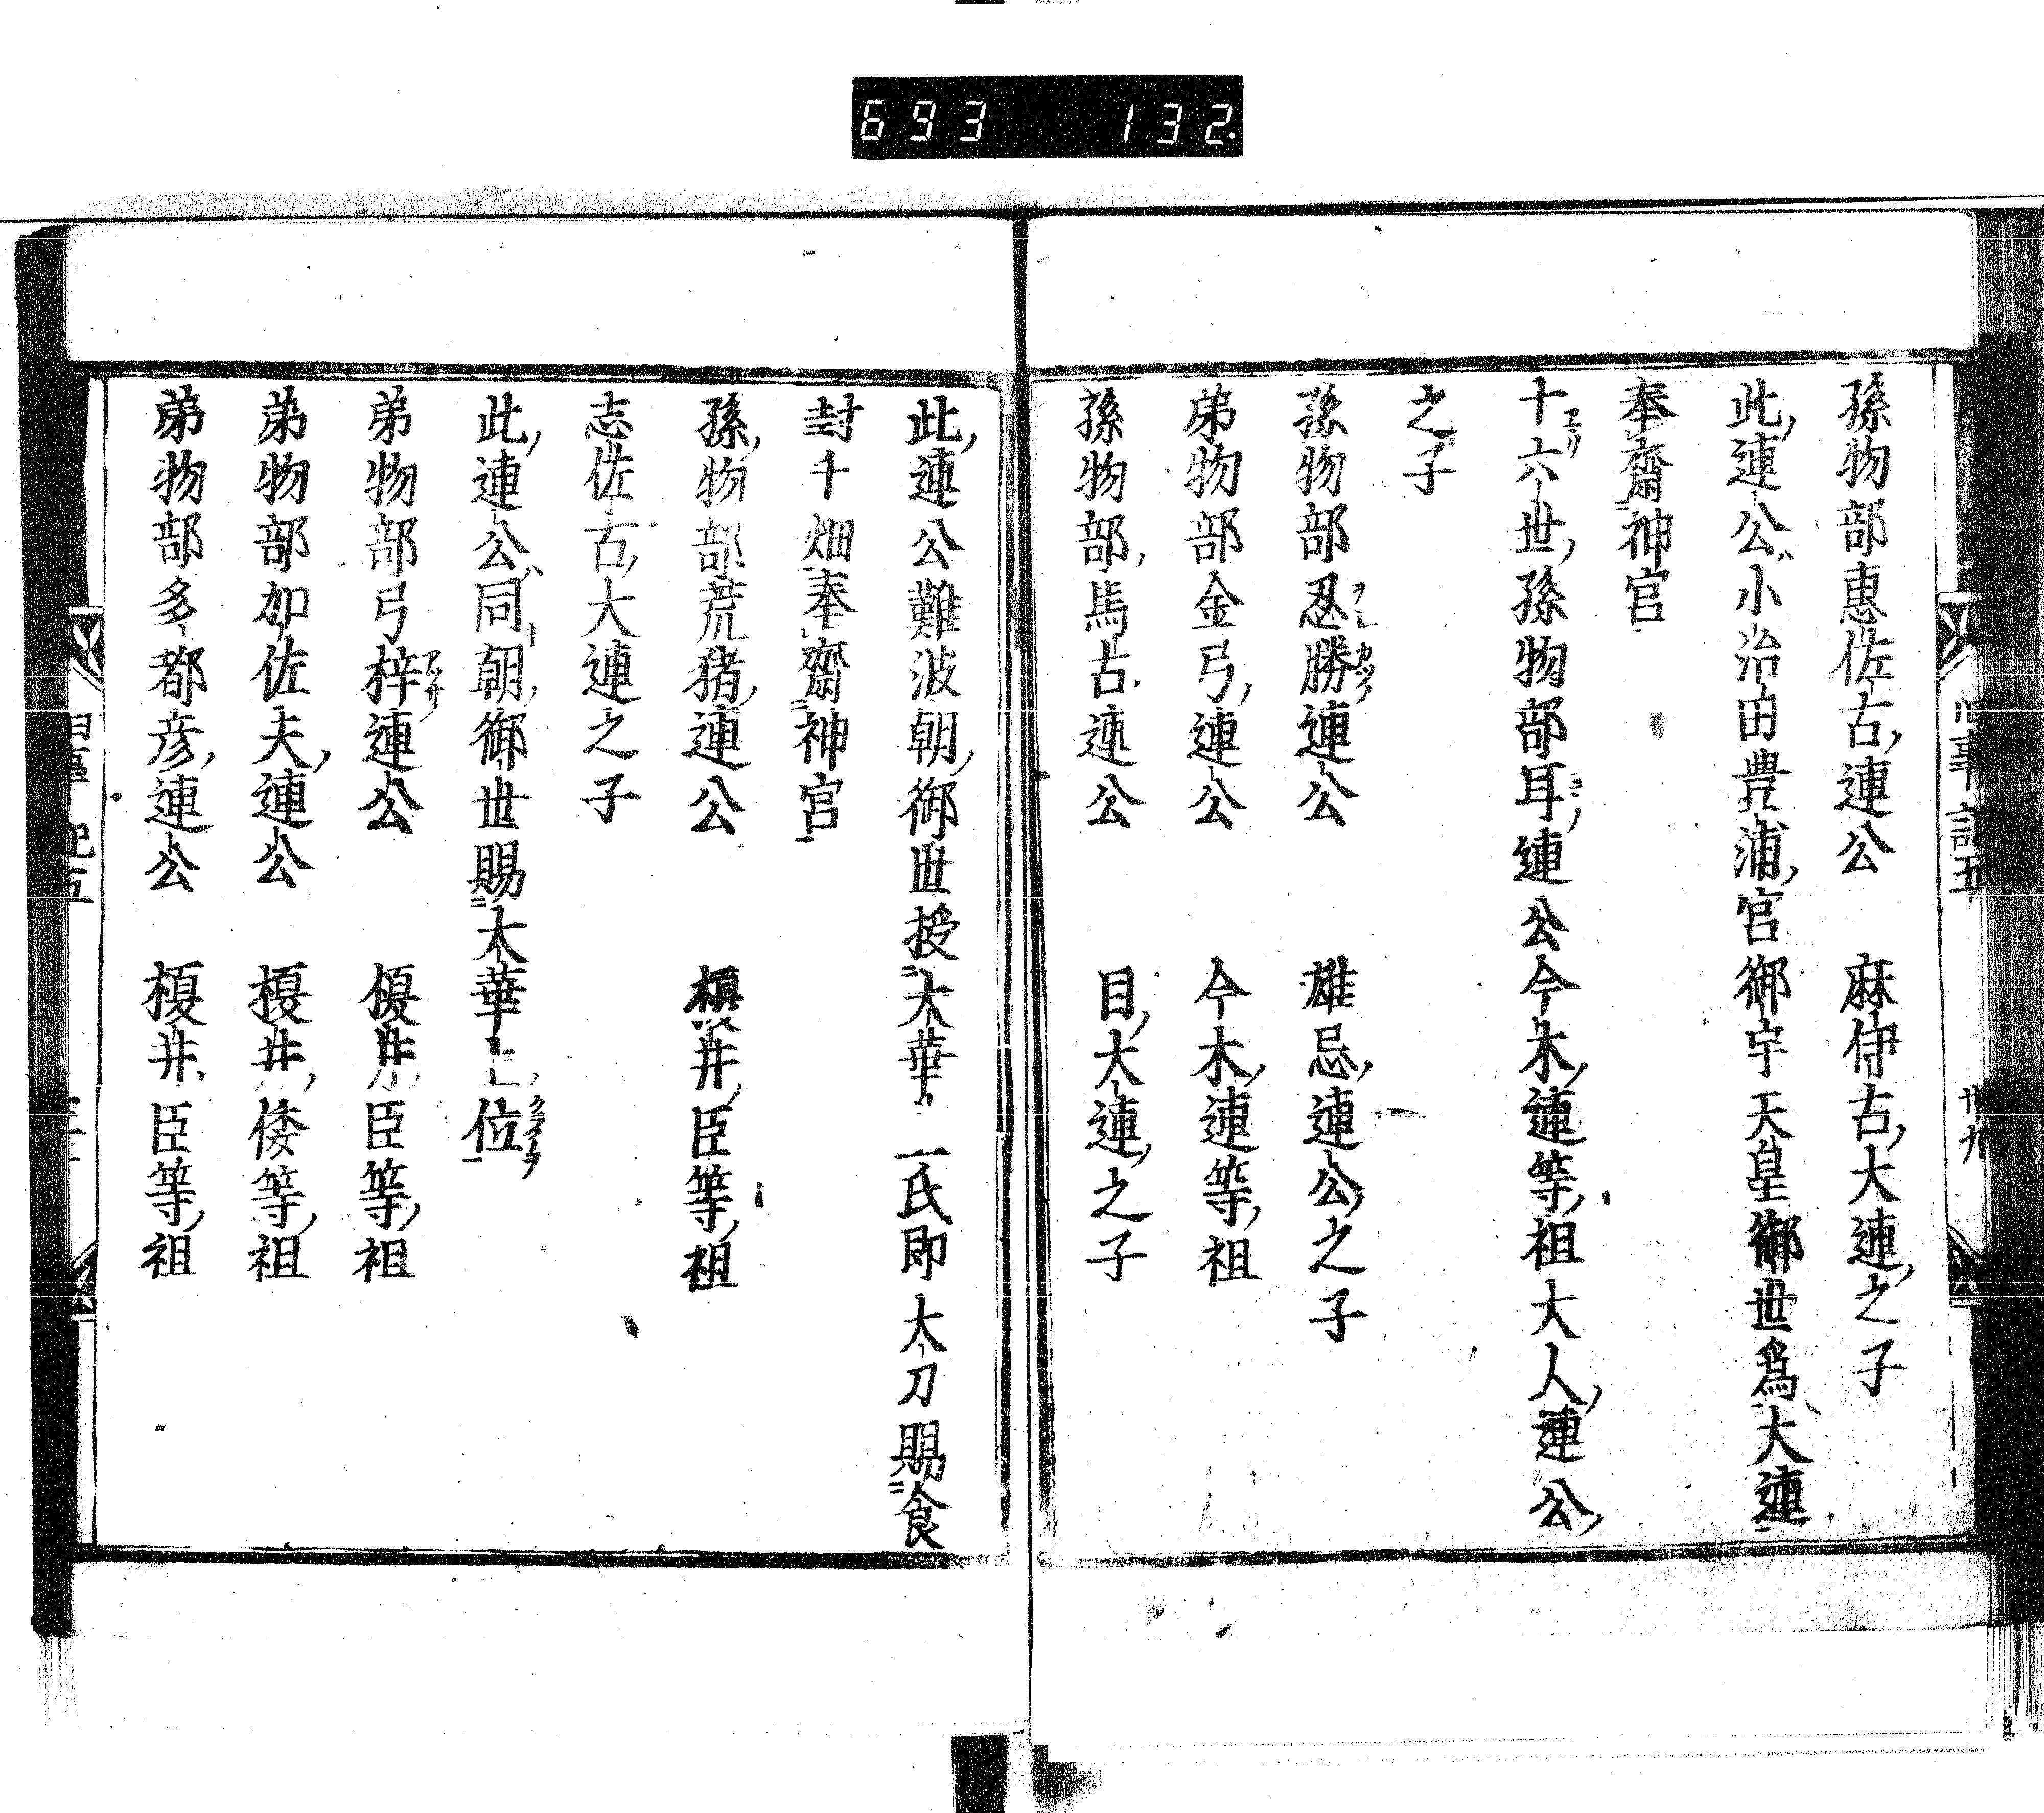 693 132.
孫物部惠佐古連公 麻侍古大連之子
此連公小治田豊浦宮御宇天皇御世爲大連
奉齋神宮
十六世孫物部耳連公今木連等祖大人連公
之子
孫物部忍勝連公 雄忌連公之子
弟物部金弓連公 今木連等祖
孫物部馬古連公 目大連之子
此連公難波朝御世授大華上氏印大刀賜食
封千烟奉齋神宮
孫物部荒猪連公 榎井臣等祖
志佐古大連之子
此連公同朝御世賜大華上位
弟物部弓梓連公 榎井臣等祖
弟物部加佐夫連公 榎井倭等祖
弟物部多都彦連公 榎井臣等祖